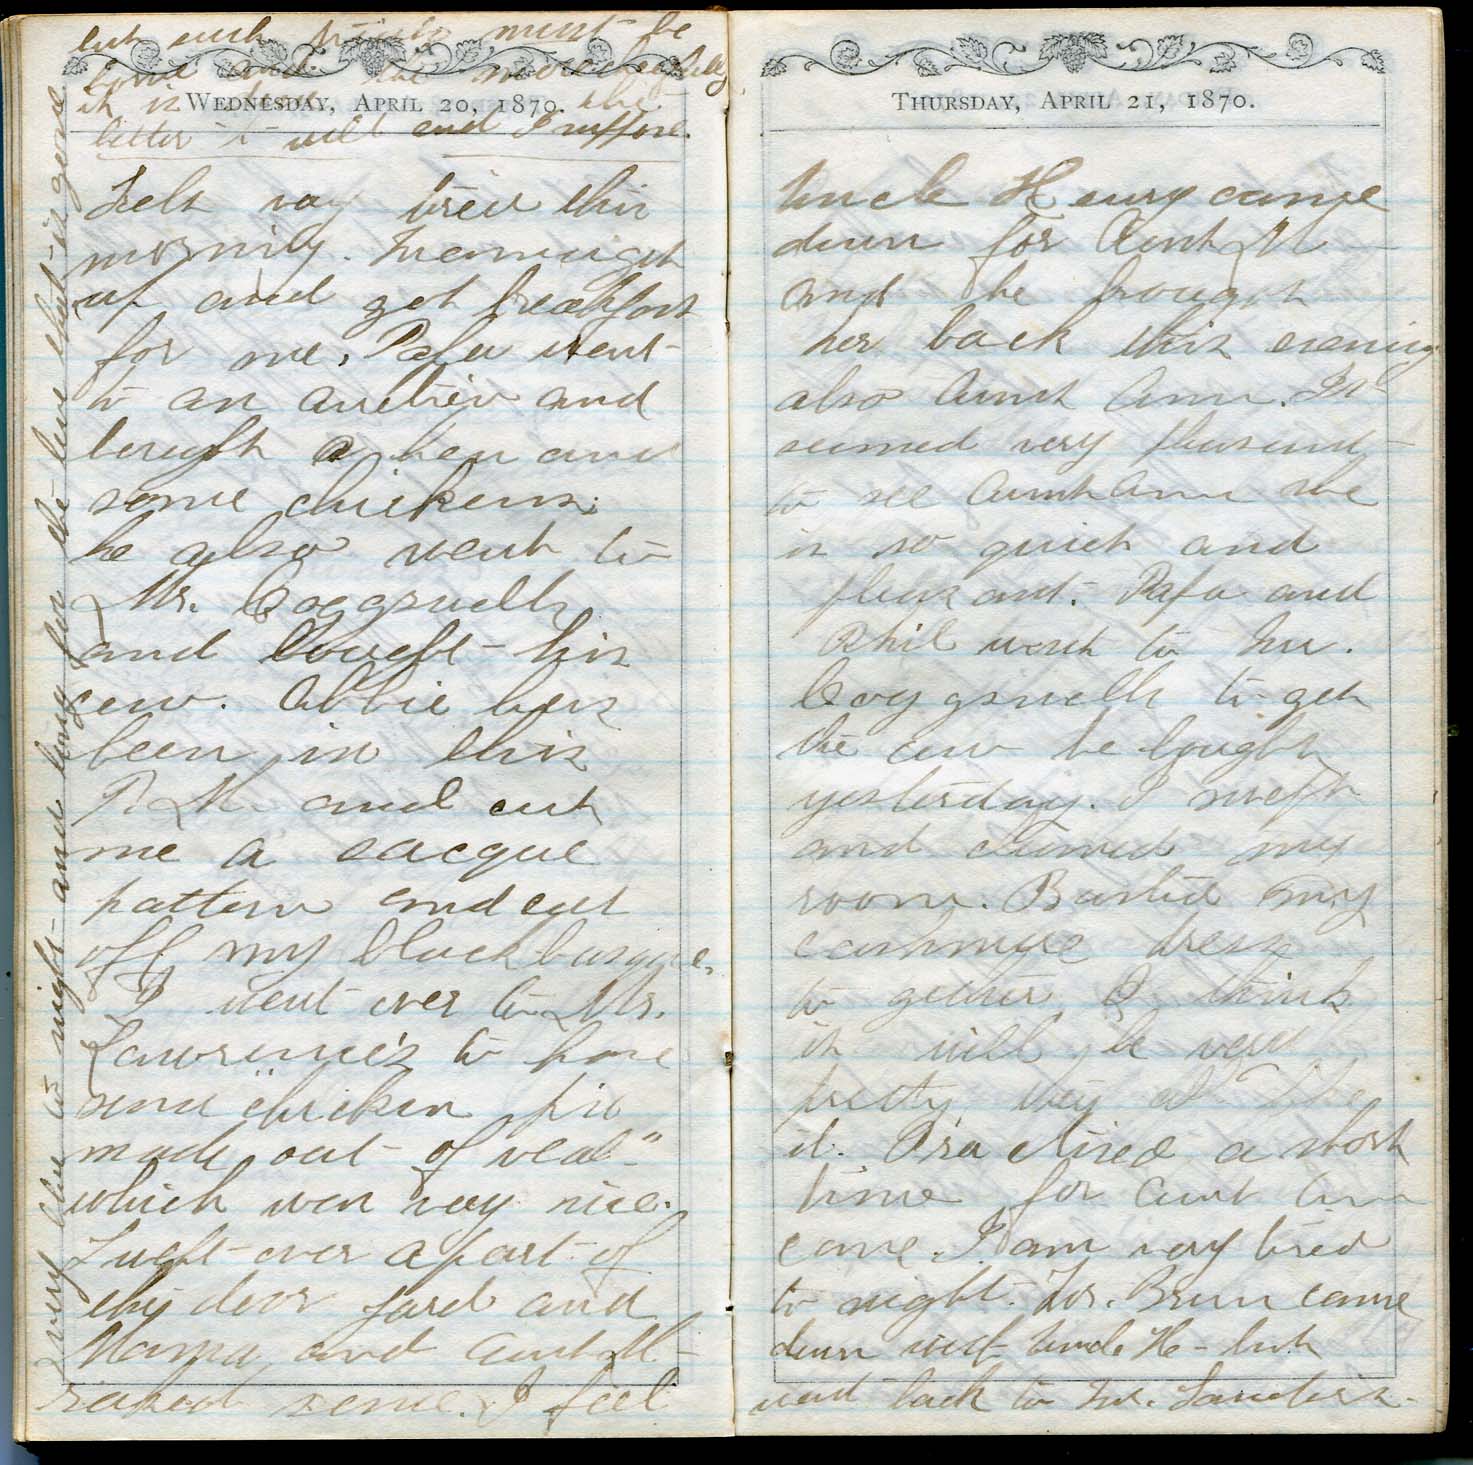 WEDNESDAY, APRIL 20, 1870.
Felt very tired this
morning. Mama got
up and got breakfast
for me. Papa went
to an auction and
bought a hen and
some chickens.
he also went to
Mr. Coggswells
and bought his
cow. Abbie has
been in this
P.M. and cut
me a sacque
pattern and cut
off my black basque.
I went over to Mr.
Lawrence's to have
some "chicken pie
made out of veal"
which was very nice.
I swept over a part of
the door yard and
Mama and Aunt M-
raked some. I feel
very blue to night and long for the love that is gone
but such trials must be
borne and the more cheerfully
it is the
better it will and I suppose.
THURSDAY, APRIL 21, 1870.
Uncle Henry came
down for Aunt M-
and he brought
her back this evening
also Aunt Ann. It
seemed very pleasant
to see Aunt Ann she
is so quiet and
pleasant. Papa and
Phil went to Mr.
Coggswells to get
the cow he bought
yesterday. I swept
and cleaned my
room. Basted my
cashmere dress
to gether I think
it will be very
pretty. they all like
it. Practised a short
time for Aunt Ann
came. I am very tired
to night. Mr. Brown came
down with Uncle He- but
went back to Mr.